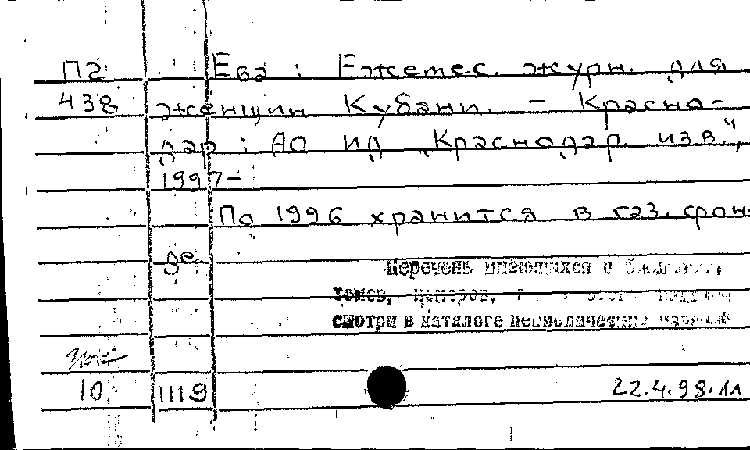 П2 Ева : Ежемес. журн. для
438 женщин Кубани. – Красно-
дар : АО ИД „Краснодар. изв.“,
1997–
По 1996 хранится в газ. фон
Перечень имеющихся в
томов, номеров,
смотри в каталоге периодических изданий
10 1119 22.4.98.